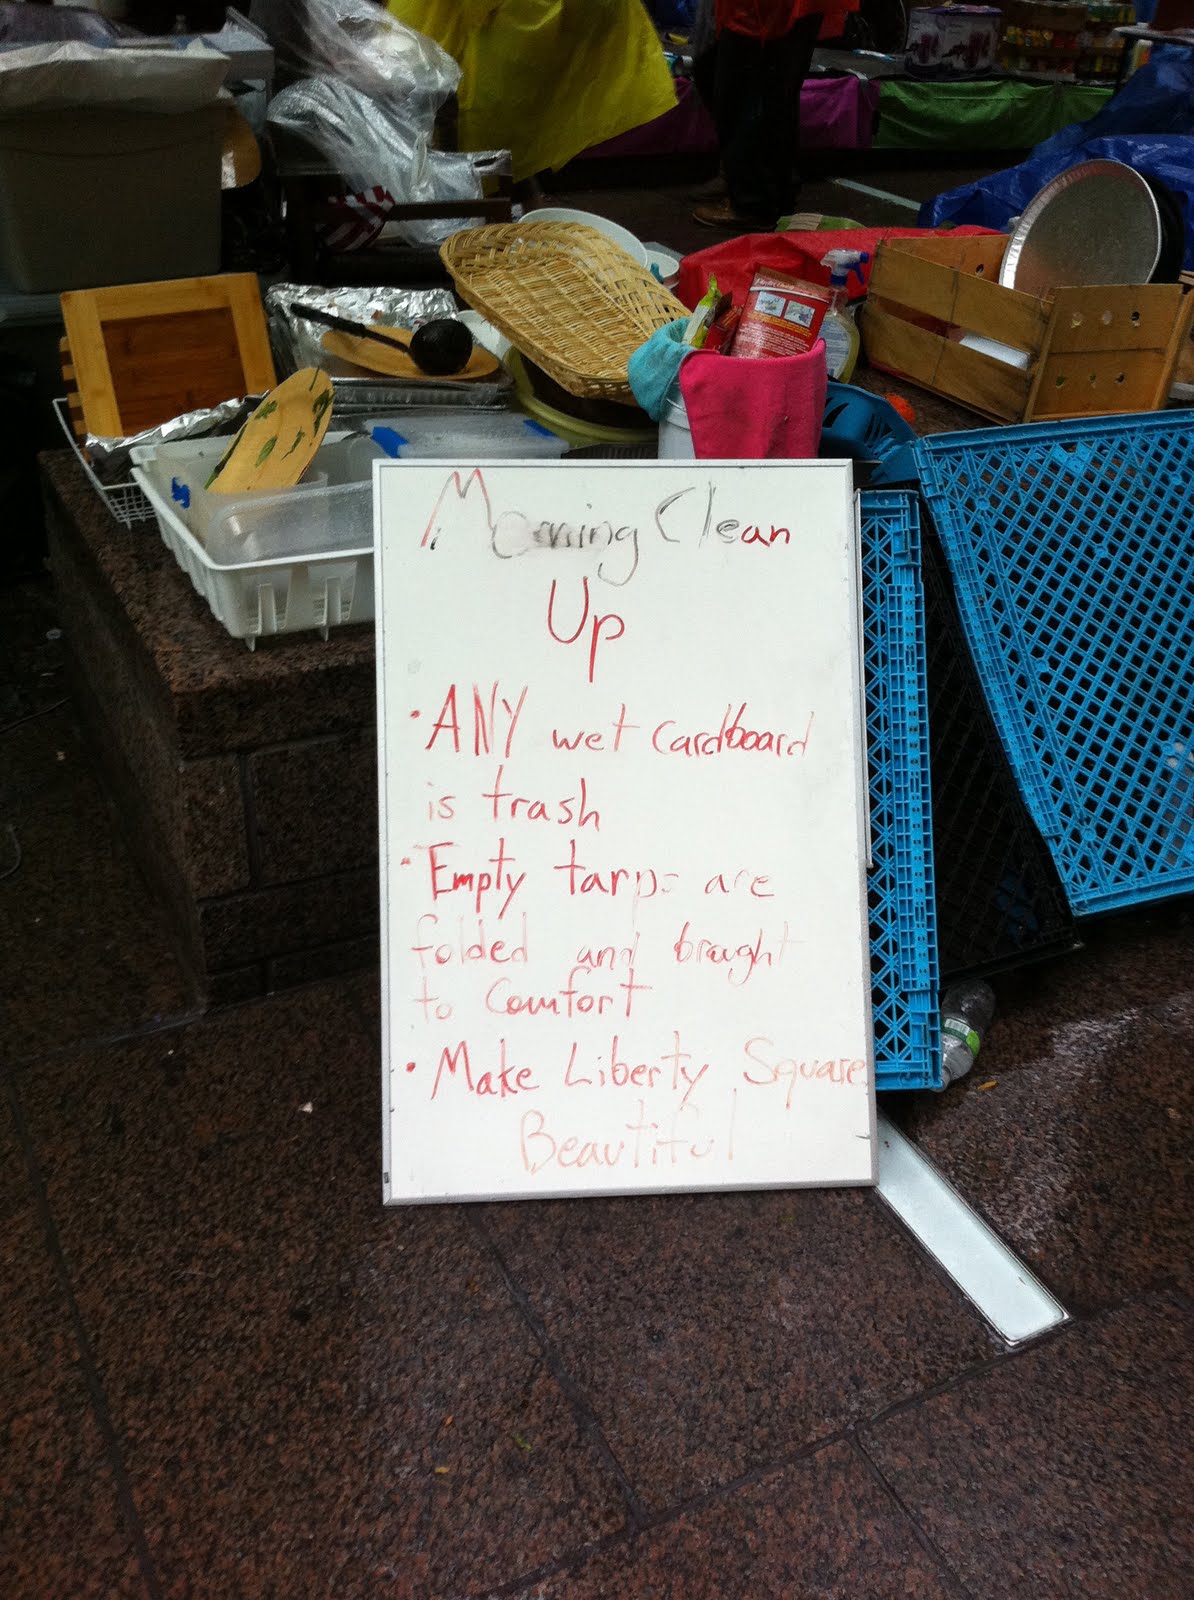 Morning Clean
Up
• ANY wet cardboard
is trash
• Empty tarps are
folded and brought
to Comfort
• Make Liberty Square
Beautiful